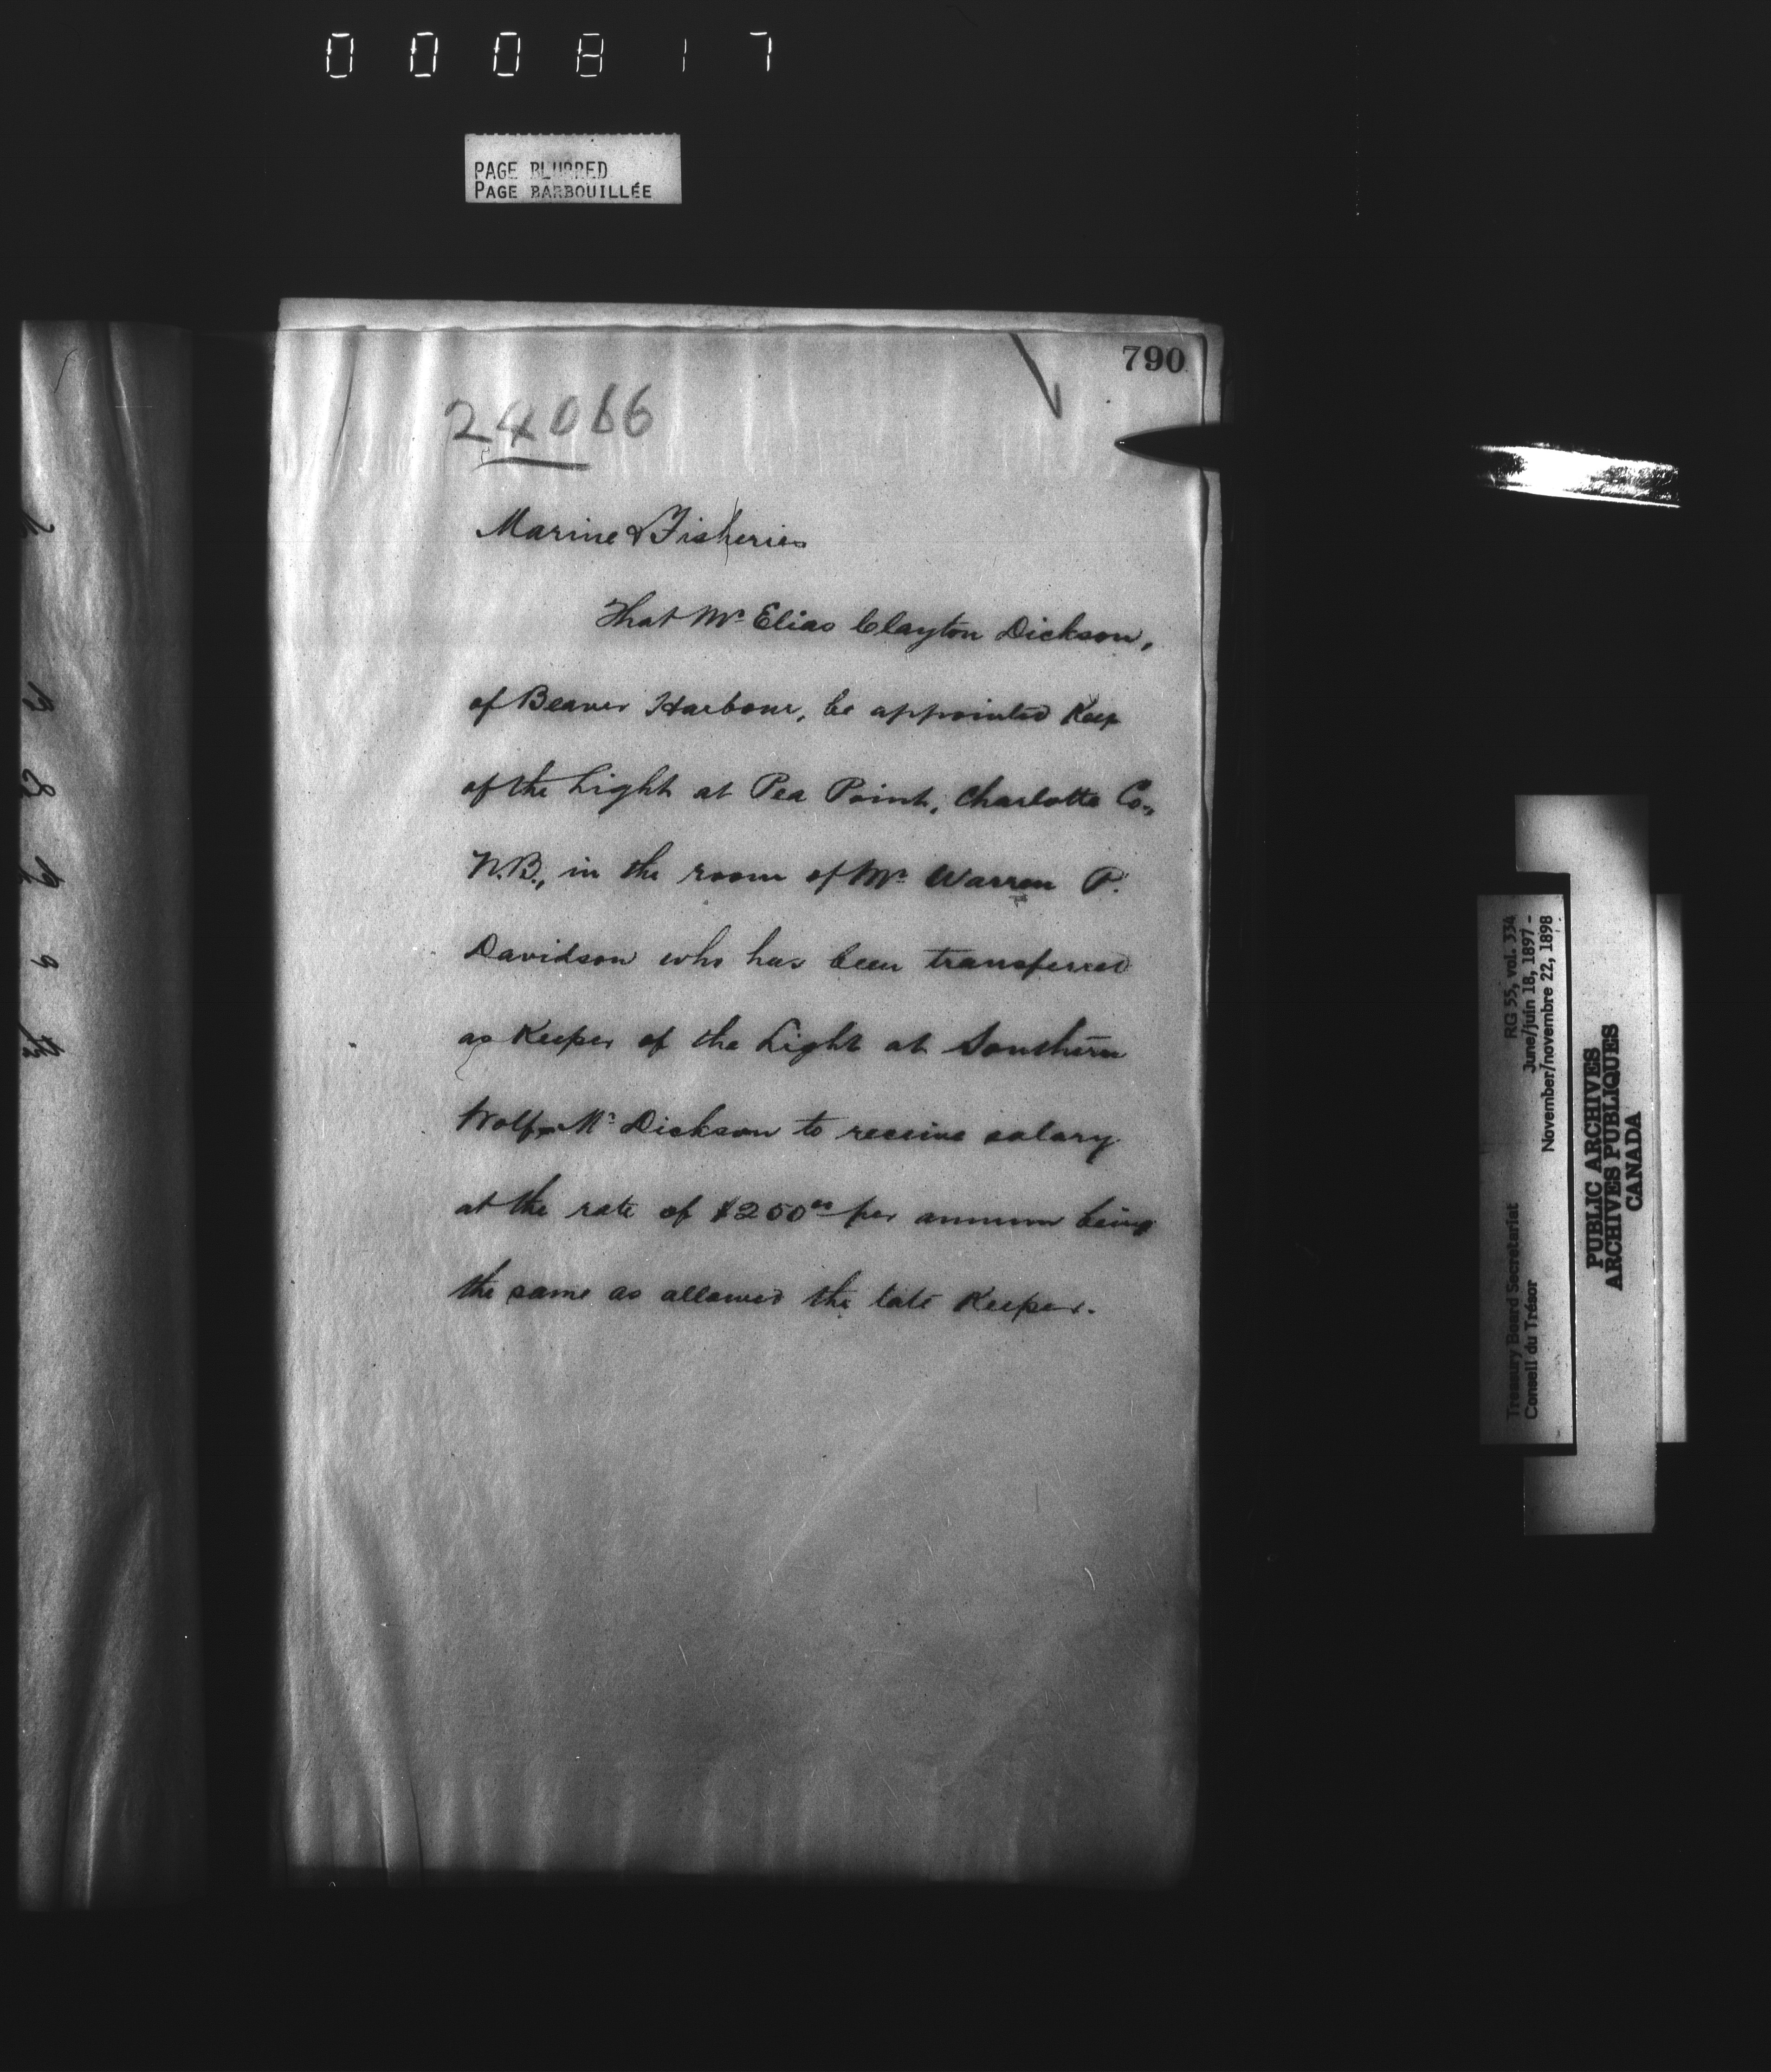 000817
PAGE BLURRED
PAGE BARBOUILLÉE
790
24066
Marine & Fisheries
That Mr Elias Clayton Dickson,
of Beaver Harbour, be appointed Keep
of the Light at Pea Point, Charlotte Co.,
N.B., in the room of Mr Warren P.
Davidson who has been transferred
as Keeper of the Light at Southern
Wolf. Mr Dickson to receive salary
at the rate of $250.00 per annum being
the same as allowed the late Keeper.
Treasury Board Secretariat RG 55, vol. 334
Conseil du Trésor June/juin 18, 1897 -
November/novembre 22, 1898
PUBLIC ARCHIVES
ARCHIVES PUBLIQUES
CANADA